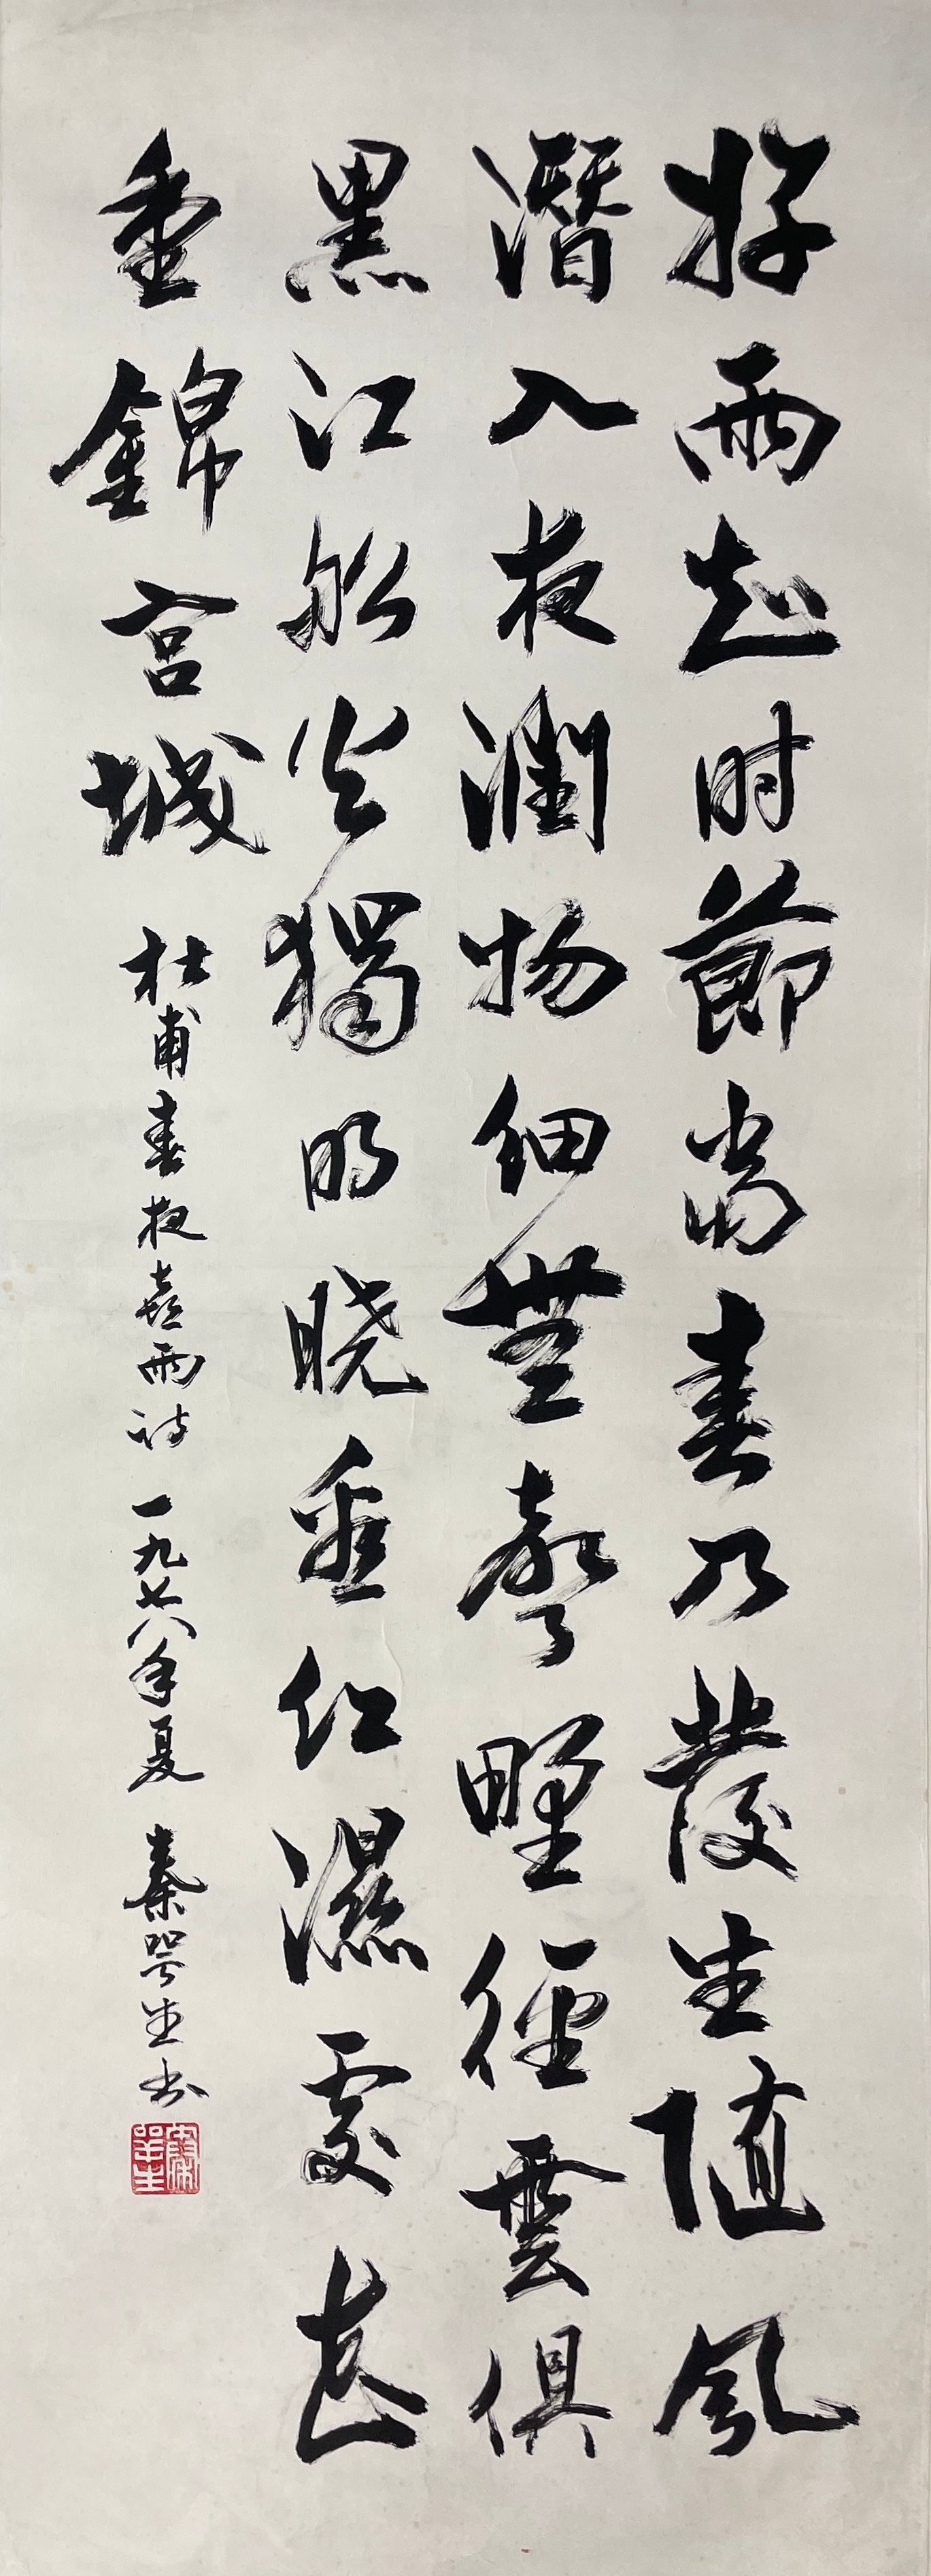 好雨知时節當春乃發生随風
潛入夜潤物細無聲野徑雲俱
黑江船火獨明晓看红濕處花
重錦官城 杜甫春夜喜雨诗 一九七八年夏 秦咢生书
秦咢生